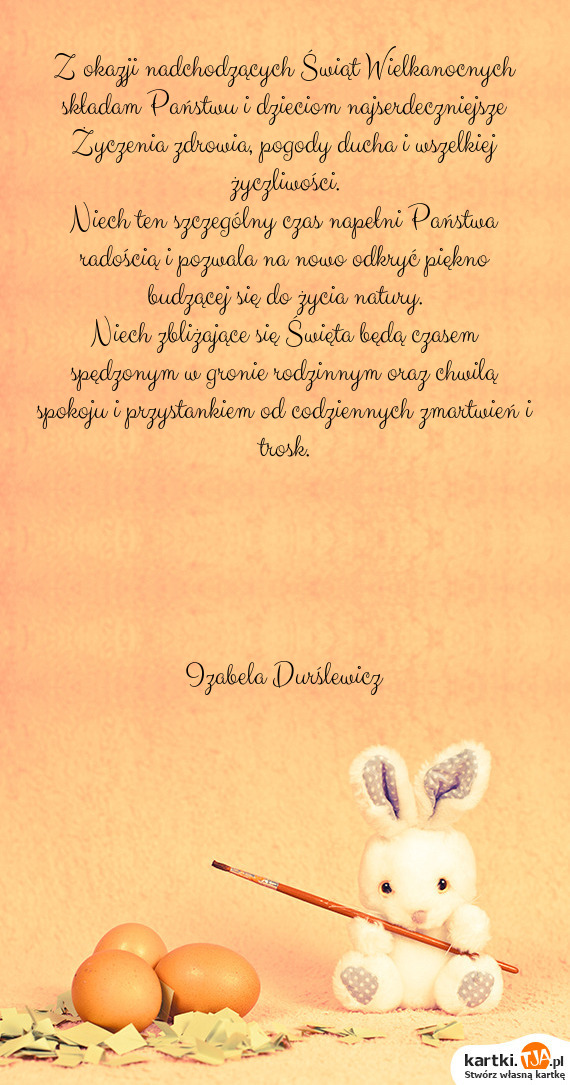 Z okazji nadchodzących Świąt Wielkanocnych
składam Państwu i dzieciom najserdeczniejsze
Życzenia zdrowia, pogody ducha i wszelkiej
życzliwości.
Niech ten szczególny czas napełni Państwa
radością i pozwala na nowo odkryć piękno
budzącej się do życia natury.
Niech zbliżające się Święta będą czasem
spędzonym w gronie rodzinnym oraz chwilą
spokoju i przystankiem od codziennych zmartwień i
trosk.
Izabela Durślewicz
kartki.TJA.pl
Stwórz własną kartkę